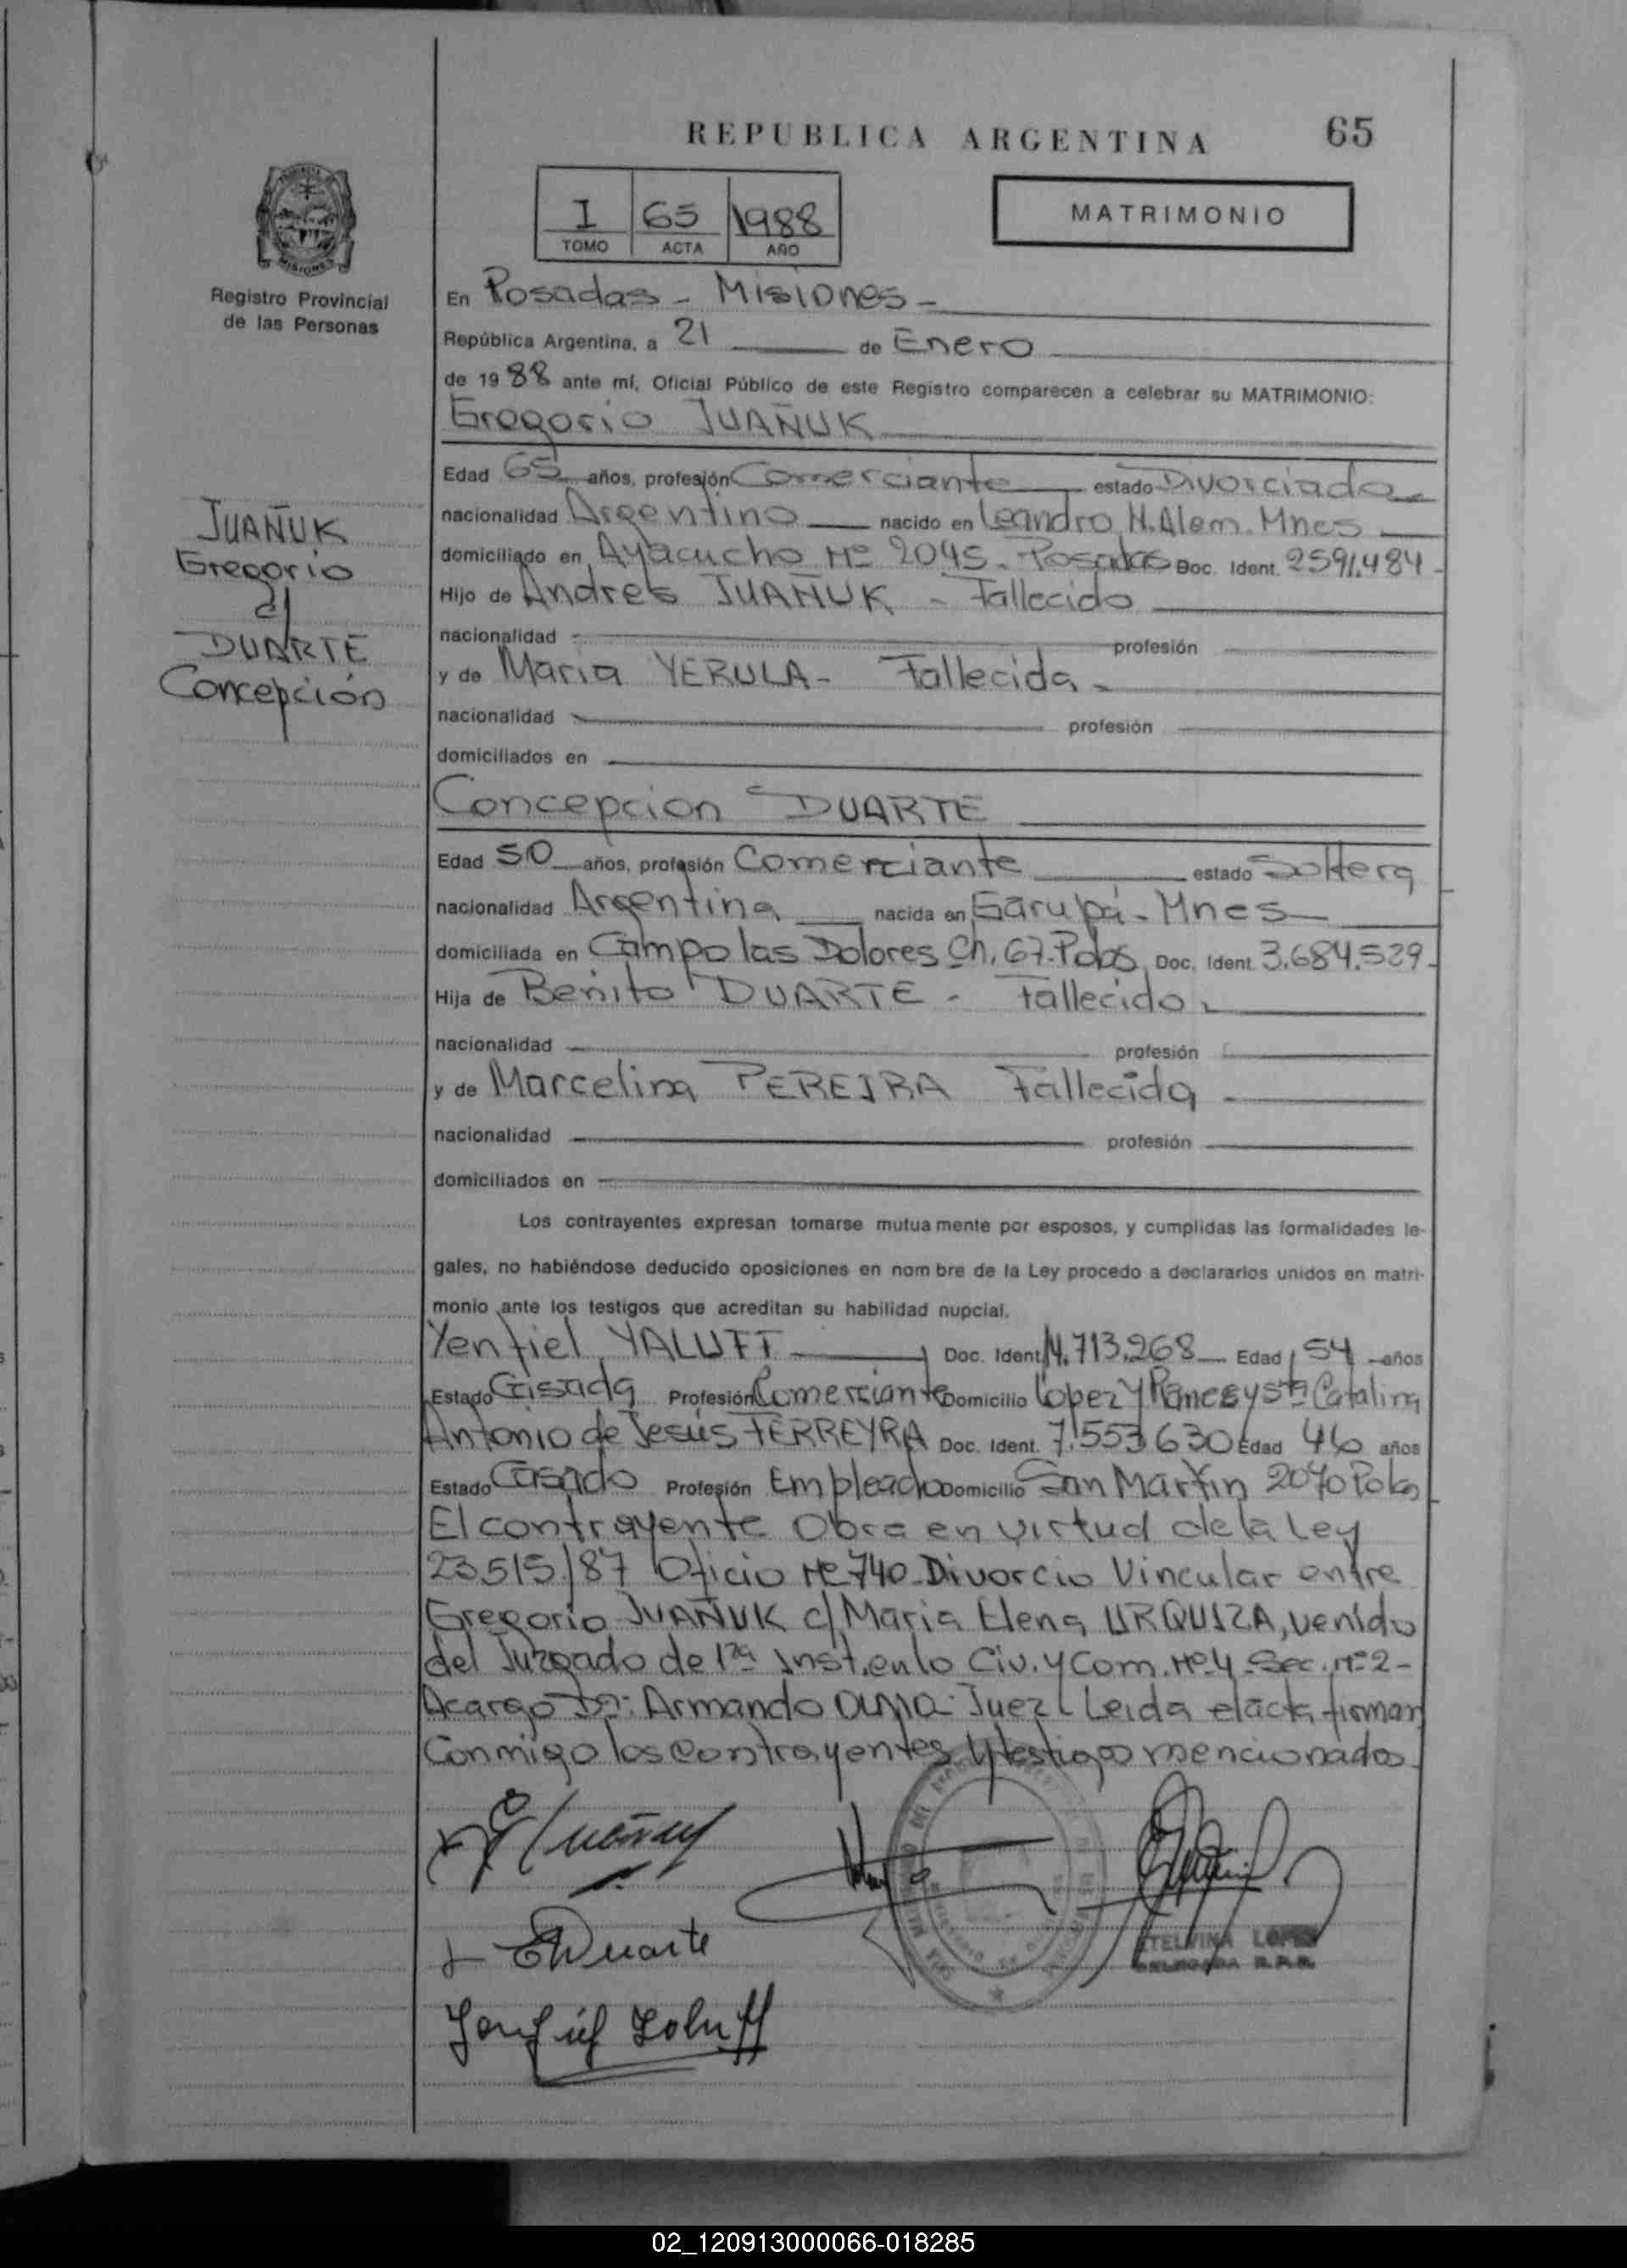 REPUBLICA ARGENTINA 65
I 65 1988
TOMO ACTA AÑO
MATRIMONIO
MISIONES
Registro Provincial
de las Personas
En Posadas - Misiones -
República Argentina, a 21 de Enero
de 1988 ante mí, Oficial Público de este Registro comparecen a celebrar su MATRIMONIO:
Gregorio JUAÑUK
Edad 65 años, profesión Comerciante estado Divorciado
nacionalidad Argentino nacido en Leandro N. Alem. Mnes
domiciliado en Ayacucho Nº 2045 - Posadas Doc. Ident. 2591.484 -
Hijo de Andres JUAÑUK - Fallecido
nacionalidad profesión
y de Maria YERULA - Fallecida -
nacionalidad profesión
domiciliados en
JUAÑUK
Gregorio
c/
DUARTE
Concepción
Concepcion DUARTE
Edad 50 años, profesión Comerciante estado Soltera
nacionalidad Argentina nacida en Garupá - Mnes
domiciliada en Campo las Dolores Ch. 67. Pdas Doc. Ident. 3.684.529 -
Hija de Benito DUARTE - Fallecido
nacionalidad profesión
y de Marcelina PEREIRA Fallecida -
nacionalidad profesión
domiciliados en
Los contrayentes expresan tomarse mutuamente por esposos, y cumplidas las formalidades le-
gales, no habiéndose deducido oposiciones en nombre de la Ley procedo a declararlos unidos en matri-
monio ante los testigos que acreditan su habilidad nupcial.
Yenfiel YALUFF Doc. Ident. 4.713.268 Edad 54 años
Estado Casada Profesión Comerciante Domicilio Lopez y Planes y Sta Catalina
Antonio de Jesús FERREYRA Doc. Ident. 7.553.630 Edad 46 años
Estado Casado Profesión Empleado Domicilio San Martin 2070 Pdas
El contrayente Obra en virtud de la Ley
23.515/87 Oficio Nº 740 - Divorcio Vincular entre
Gregorio JUAÑUK c/ Maria Elena URQUIZA, venido
del Juzgado de 1ra Inst. en lo Civ. y Com. Nº 4 - Sec. Nº 2 -
Acargo Dr: Armando - Juez - Leida el acta firman
Conmigo los contrayentes y testigos mencionados
Duarte
Yenfiel Yaluff
ETELVINA LOPEZ
DELEGADA R.P.P.
02_120913000066-018285